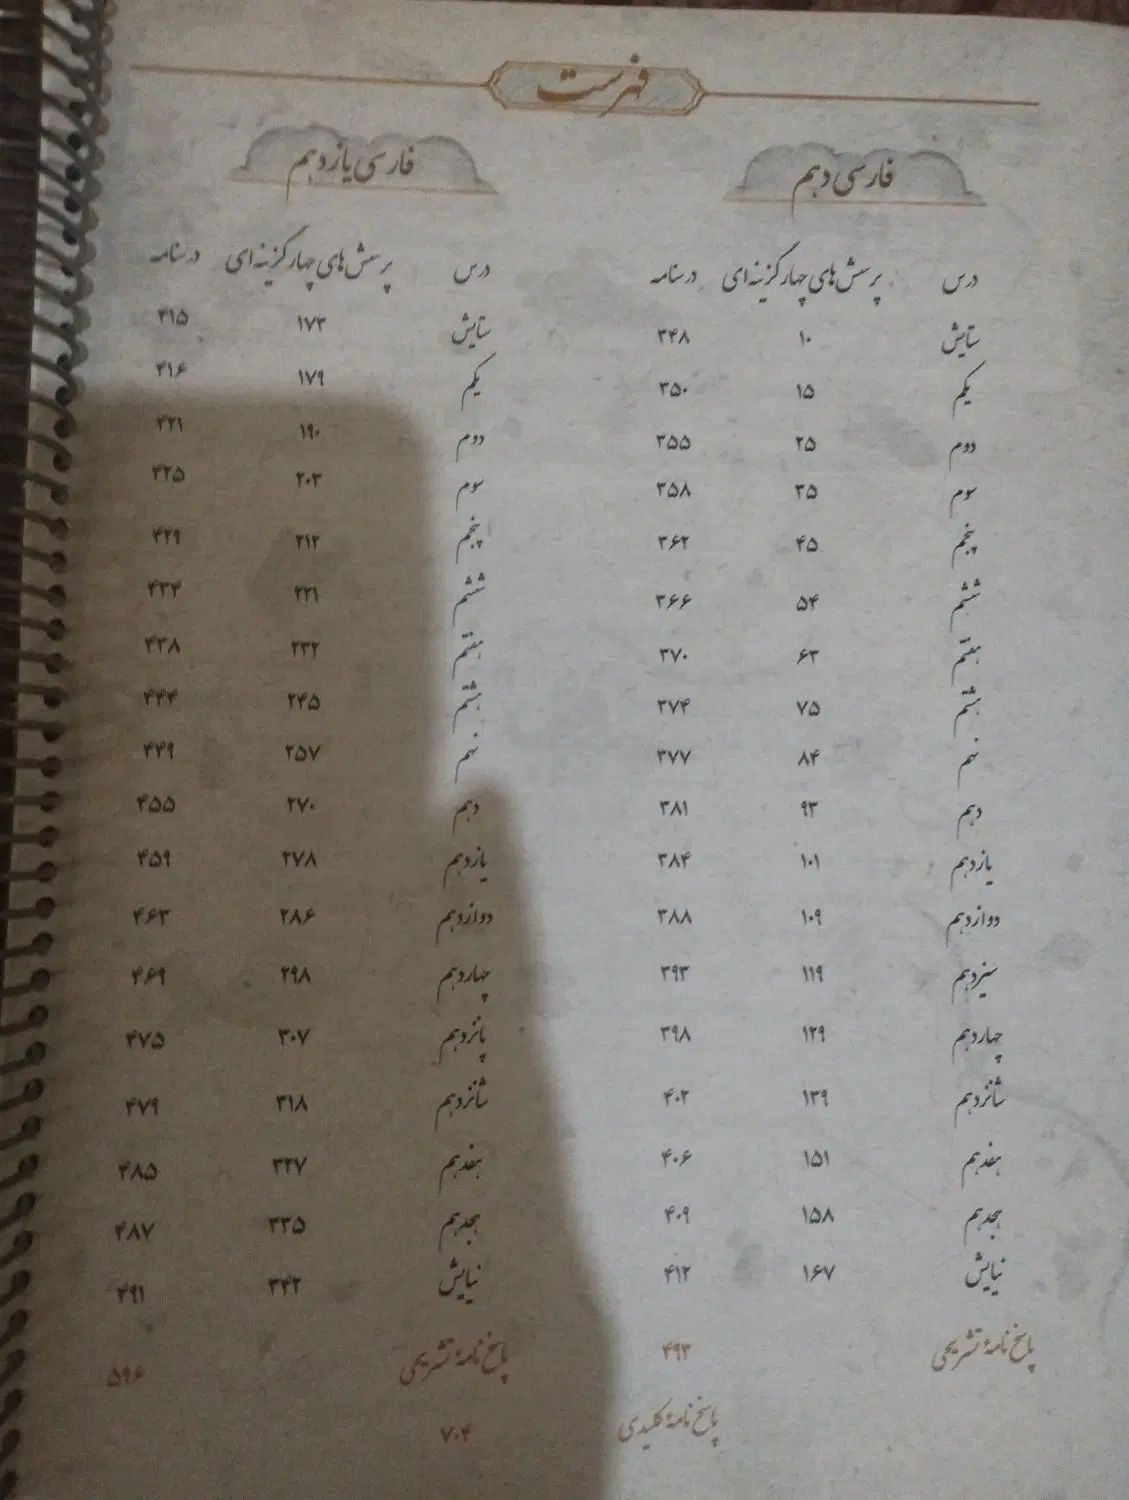 فهرست
فارسی دهم
درس پرسش‌های چهارگزینه‌ای درسنامه
ستایش ۱۰ ۳۴۸
یکم ۱۵ ۳۵۰
دوم ۲۵ ۳۵۵
سوم ۳۵ ۳۵۸
پنجم ۴۵ ۳۶۲
ششم ۵۴ ۳۶۶
هفتم ۶۳ ۳۷۰
هشتم ۷۵ ۳۷۴
نهم ۸۴ ۳۷۷
دهم ۹۳ ۳۸۱
یازدهم ۱۰۱ ۳۸۴
دوازدهم ۱۰۹ ۳۸۸
سیزدهم ۱۱۹ ۳۹۳
چهاردهم ۱۲۹ ۳۹۸
شانزدهم ۱۳۹ ۴۰۲
هفدهم ۱۵۱ ۴۰۶
هجدهم ۱۵۸ ۴۰۹
نیایش ۱۶۷ ۴۱۲
پاسخ‌نامهٔ تشریحی ۴۹۳
فارسی یازدهم
درس پرسش‌های چهارگزینه‌ای درسنامه
ستایش ۱۷۳ ۴۱۵
یکم ۱۷۹ ۴۱۶
دوم ۱۹۰ ۴۲۱
سوم ۲۰۳ ۴۲۵
پنجم ۲۱۲ ۴۲۹
ششم ۲۲۱ ۴۳۴
هفتم ۲۳۲ ۴۳۸
هشتم ۲۴۵ ۴۴۴
نهم ۲۵۷ ۴۴۹
دهم ۲۷۰ ۴۵۵
یازدهم ۲۷۸ ۴۵۹
دوازدهم ۲۸۶ ۴۶۳
چهاردهم ۲۹۸ ۴۶۹
پانزدهم ۳۰۷ ۴۷۵
شانزدهم ۳۱۸ ۴۷۹
هفدهم ۳۲۷ ۴۸۵
هجدهم ۳۳۵ ۴۸۷
نیایش ۳۴۲ ۴۹۱
پاسخ‌نامهٔ تشریحی ۵۹۶
پاسخ‌نامهٔ کلیدی ۷۰۴